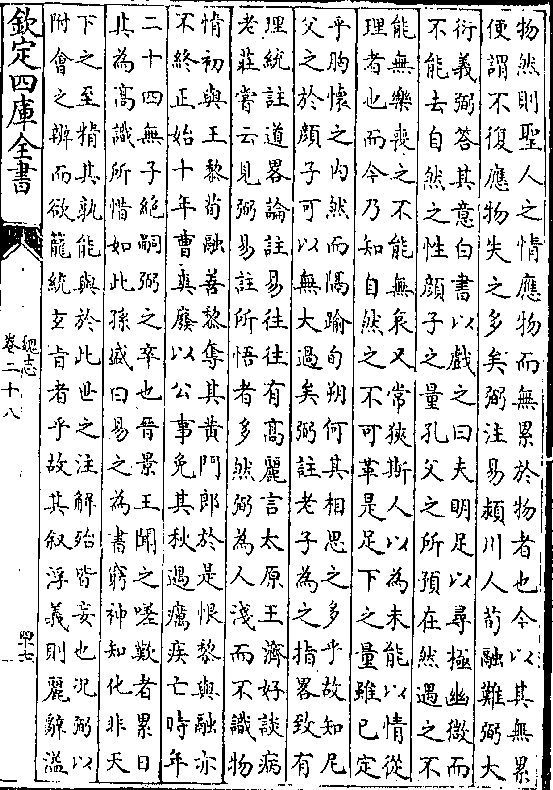 物然則聖人之情應物而無累於物者也今以其無累
便謂不復應物失之多矣弼注易潁川人荀融難弼大
衍義弼答其意白書以戲之曰夫明足以尋極幽微而
不能去自然之性顏子之量孔父之所預在然遇之不
能無樂喪之不能無哀又常狹斯人以為未能以情從
理者也而今乃知自然之不可革是足下之量雖已定
乎胸懷之内然而隔踰旬朔何其相思之多乎故知尼
父之於顏子可以無大過矣弼註老子為之指畧致有
理統註道畧論註易往往有高麗言太原王濟好談病
老莊嘗云見弼易註所悟者多然弼為人淺而不識物
情初與王黎荀融善黎奪其黃門郎於是恨黎與融亦
不終正始十年曹爽廢以公事免其秋遇癘疾亡時年
二十四無子絶嗣弼之卒也晉景王聞之嗟歎者累日
其為高識所惜如此孫盛曰易之為書窮神知化非天
下之至精其孰能與於此世之注解殆皆妄也況弼以
附會之辨而欲籠統玄旨者乎故其叙浮義則麗辭溢
欽定四庫全書
魏志
卷二十八
四十七